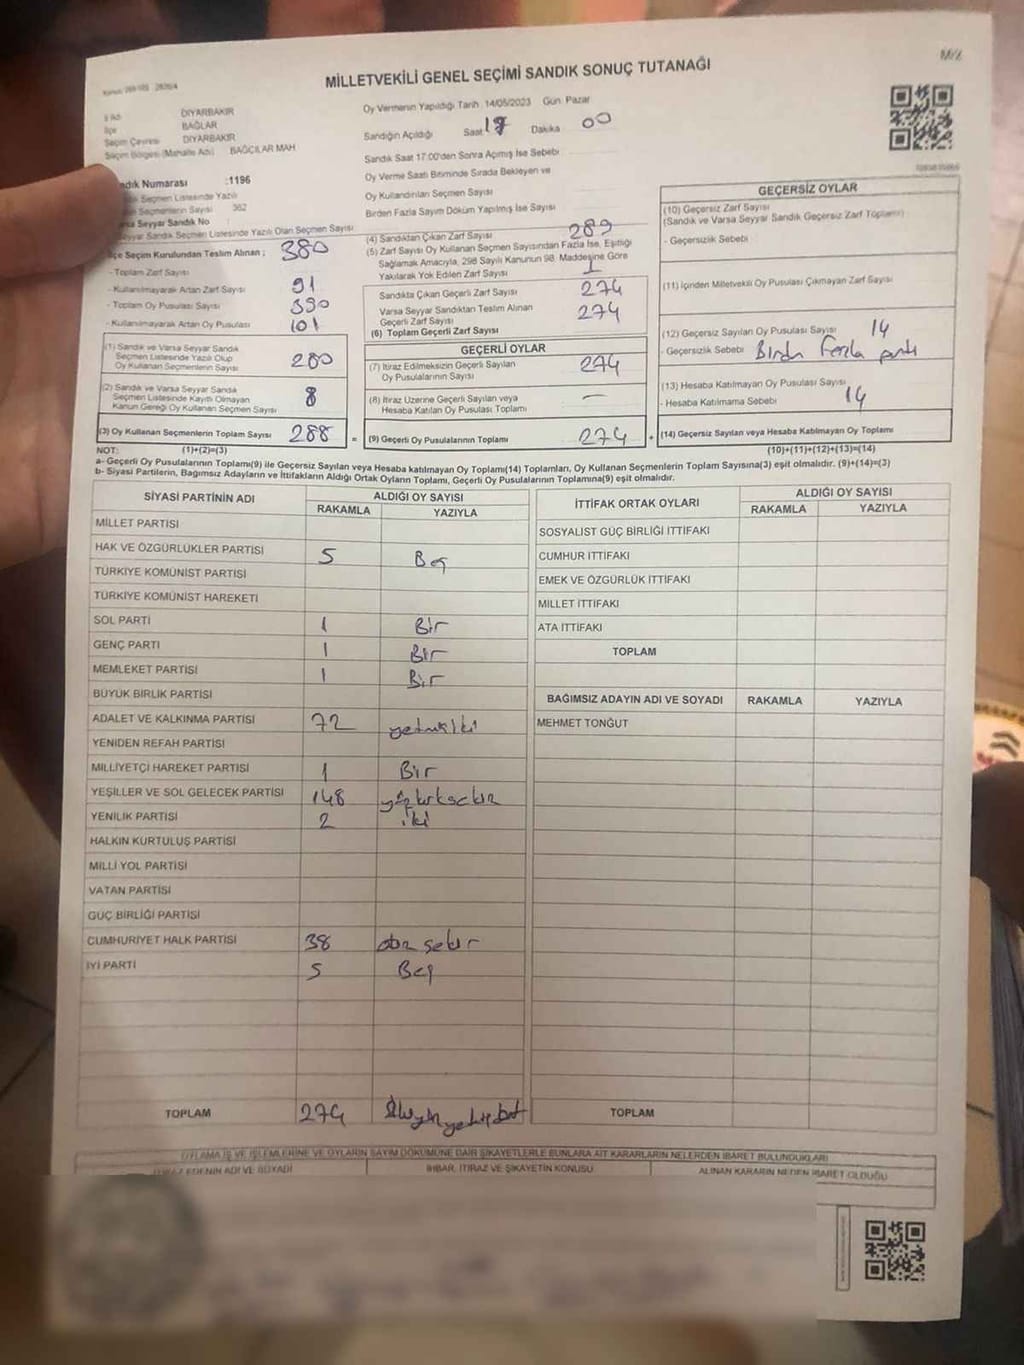 M/2
MİLLETVEKİLİ GENEL SEÇİMİ SANDIK SONUÇ TUTANAĞI
İli Adı DİYARBAKIR
İlçe BAĞLAR
Seçim Çevresi DİYARBAKIR
Seçim Bölgesi (Mahalle Adı) BAĞCILAR MAH
Numarası :1196
Seçmen Listesinde Yazılı
Seçmenlerin Sayısı 362
Seyyar Sandık No
Seyyar Sandık Seçmen Listesinde Yazılı Olan Seçmen Sayısı
Seçim Kurulundan Teslim Alınan ; 380
- Toplam Zarf Sayısı
- Kullanılmayarak Artan Zarf Sayısı 91
- Toplam Oy Pusulası Sayısı 390
- Kullanılmayarak Artan Oy Pusulası 101
(1) Sandık ve Varsa Seyyar Sandık
Seçmen Listesinde Yazılı Olup
Oy Kullanan Seçmenlerin Sayısı 280
(2) Sandık ve Varsa Seyyar Sandık
Seçmen Listesinde Kayıtlı Olmayan
Kanun Gereği Oy Kullanan Seçmen Sayısı 8
(3) Oy Kullanan Seçmenlerin Toplam Sayısı 288 =
Oy Vermenin Yapıldığı Tarih 14/05/2023 Gün: Pazar
Sandığın Açıldığı Saat 17 Dakika 00
Sandık Saat 17.00'den Sonra Açılmış İse Sebebi
Oy Verme Saati Bitiminde Sırada Bekleyen ve
Oy Kullandırılan Seçmen Sayısı
Birden Fazla Sayım Döküm Yapılmış İse Sayısı
(4) Sandıktan Çıkan Zarf Sayısı 289
(5) Zarf Sayısı Oy Kullanan Seçmen Sayısından Fazla İse, Eşitliği
Sağlamak Amacıyla, 298 Sayılı Kanunun 98. Maddesine Göre
Yakılarak Yok Edilen Zarf Sayısı 1
Sandıkta Çıkan Geçerli Zarf Sayısı 274
Varsa Seyyar Sandıktan Teslim Alınan
Geçerli Zarf Sayısı 274
(6) Toplam Geçerli Zarf Sayısı
GEÇERLİ OYLAR
(7) İtiraz Edilmeksizin Geçerli Sayılan
Oy Pusulalarının Sayısı 274
(8) İtiraz Üzerine Geçerli Sayılan veya
Hesaba Katılan Oy Pusulası Toplamı —
(9) Geçerli Oy Pusulalarının Toplamı 274 +
GEÇERSİZ OYLAR
(10) Geçersiz Zarf Sayısı
(Sandık ve Varsa Seyyar Sandık Geçersiz Zarf Toplamı)
- Geçersizlik Sebebi
(11) İçinden Milletvekili Oy Pusulası Çıkmayan Zarf Sayısı
(12) Geçersiz Sayılan Oy Pusulası Sayısı 14
- Geçersizlik Sebebi Birden Fazla parti
(13) Hesaba Katılmayan Oy Pusulası Sayısı
- Hesaba Katılmama Sebebi 14
(14) Geçersiz Sayılan veya Hesaba Katılmayan Oy Toplamı
NOT: (1)+(2)=(3) (10)+(11)+(12)+(13)=(14)
a- Geçerli Oy Pusulalarının Toplamı(9) ile Geçersiz Sayılan veya Hesaba katılmayan Oy Toplamı(14) Toplamları, Oy Kullanan Seçmenlerin Toplam Sayısına(3) eşit olmalıdır. (9)+(14)=(3)
b- Siyasi Partilerin, Bağımsız Adayların ve İttifakların Aldığı Ortak Oyların Toplamı, Geçerli Oy Pusulalarının Toplamına(9) eşit olmalıdır.
SİYASİ PARTİNİN ADI ALDIĞI OY SAYISI
RAKAMLA YAZIYLA
MİLLET PARTİSİ
HAK VE ÖZGÜRLÜKLER PARTİSİ 5 Beş
TÜRKİYE KOMÜNİST PARTİSİ
TÜRKİYE KOMÜNİST HAREKETİ
SOL PARTİ 1 Bir
GENÇ PARTİ 1 Bir
MEMLEKET PARTİSİ 1 Bir
BÜYÜK BİRLİK PARTİSİ
ADALET VE KALKINMA PARTİSİ 72 yetmişiki
YENİDEN REFAH PARTİSİ
MİLLİYETÇİ HAREKET PARTİSİ 1 Bir
YEŞİLLER VE SOL GELECEK PARTİSİ 148 yüzkırksekiz
YENİLİK PARTİSİ 2 iki
HALKIN KURTULUŞ PARTİSİ
MİLLİ YOL PARTİSİ
VATAN PARTİSİ
GÜÇ BİRLİĞİ PARTİSİ
CUMHURİYET HALK PARTİSİ 38 otuz sekiz
İYİ PARTİ 5 Beş
TOPLAM 274 ikiyüzyetmişdört
İTTİFAK ORTAK OYLARI ALDIĞI OY SAYISI
RAKAMLA YAZIYLA
SOSYALİST GÜÇ BİRLİĞİ İTTİFAKI
CUMHUR İTTİFAKI
EMEK VE ÖZGÜRLÜK İTTİFAKI
MİLLET İTTİFAKI
ATA İTTİFAKI
TOPLAM
BAĞIMSIZ ADAYIN ADI VE SOYADI RAKAMLA YAZIYLA
MEHMET TONĞUT
TOPLAM
OYLAMA İŞ VE İŞLEMLERİNE VE OYLARIN SAYIM DÖKÜMÜNE DAİR ŞİKAYETLERLE BUNLARA AİT KARARLARIN NELERDEN İBARET BULUNDUKLARI
EDENİN ADI VE SOYADI İHBAR, İTİRAZ VE ŞİKAYETİN KONUSU ALINAN KARARIN NEDEN İBARET OLDUĞU